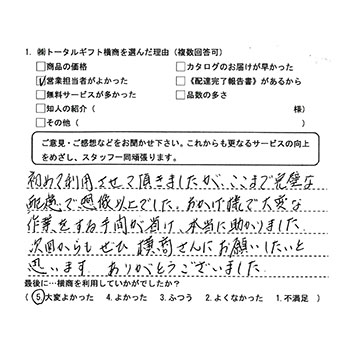 1. ㈱トータルギフト横商を選んだ理由(複数回答可)
□商品の価格 □カタログのお届けが早かった
☑営業担当者がよかった □《配達完了報告書》があるから
□無料サービスが多かった □品数の多さ
□知人の紹介( 様)
□その他( )
ご意見・ご感想などをお聞かせ下さい。これからも更なるサービスの向上
をめざし、スタッフ一同頑張ります。
初めて利用させて頂きましたが、ここまで完璧な
配慮で想像以上でした。おかげ様で大変な
作業をする手間が省け、本当に助かりました。
次回からもぜひ横商さんにお願いしたいと
思います。ありがとうございました。
最後に…横商を利用していかがでしたか?
(⑤大変よかった 4.よかった 3.ふつう 2.よくなかった 1.不満足 )